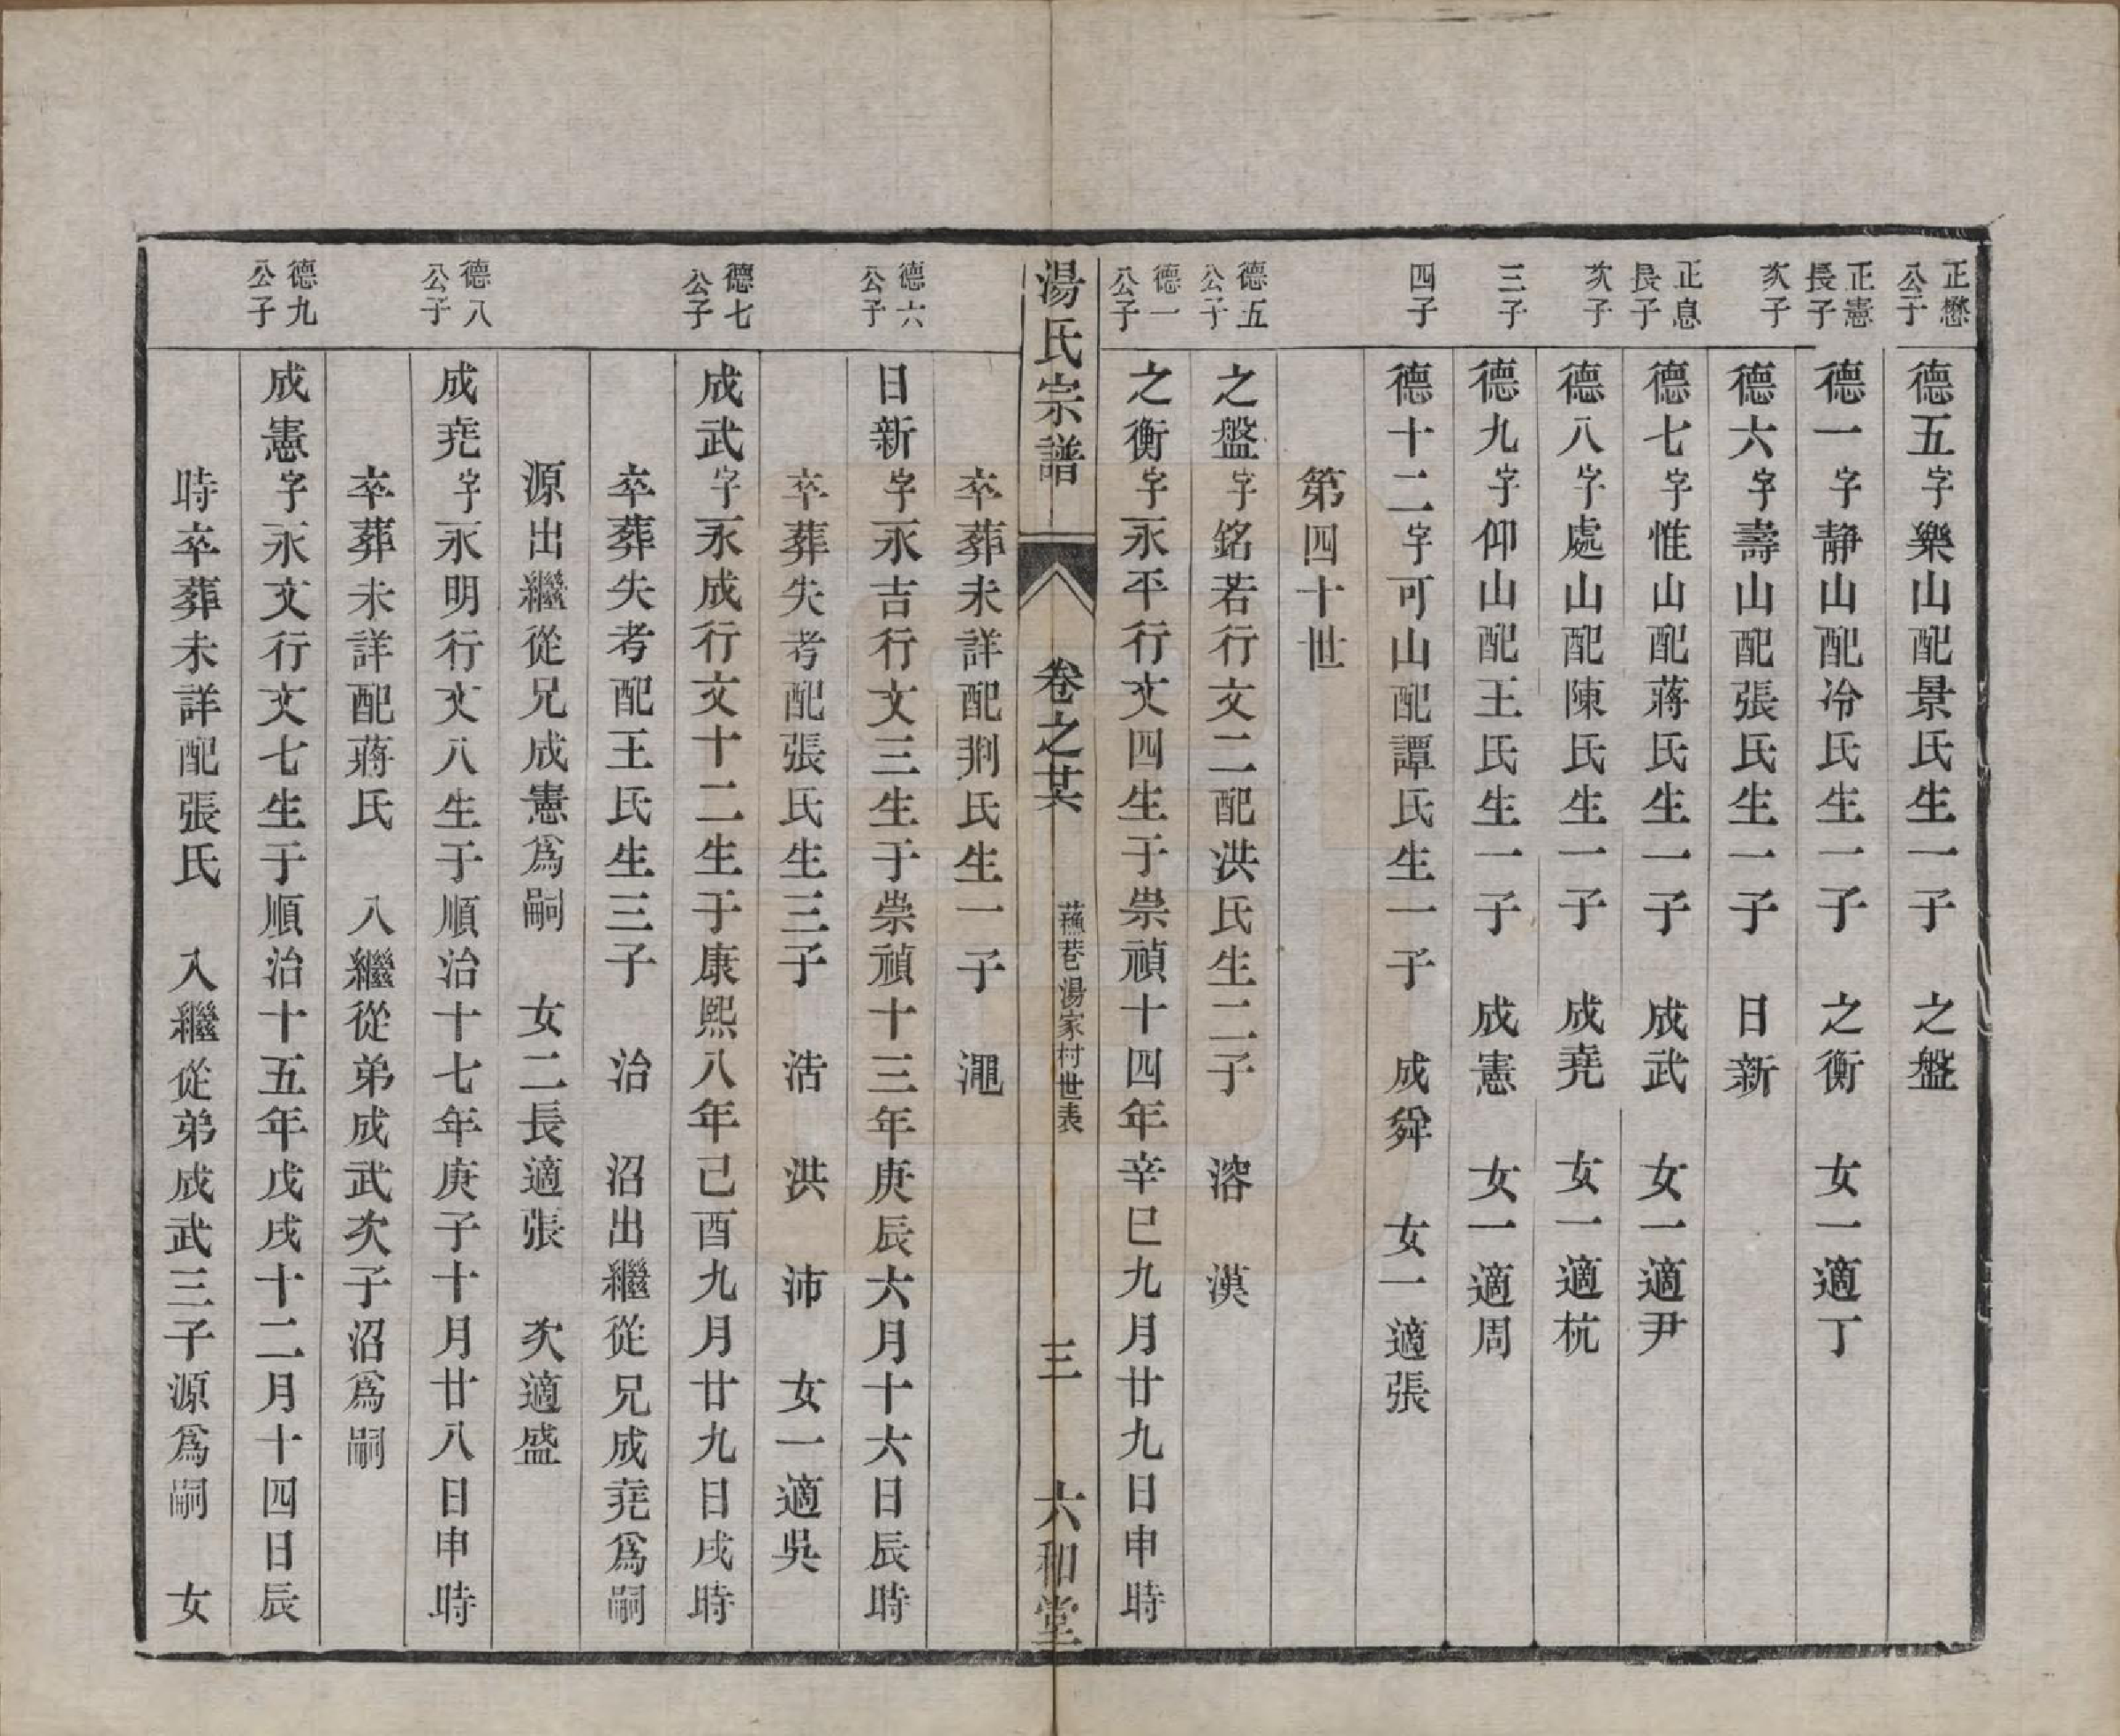 正懋公子
德五字樂山配景氏生一子　之盤
正憲長子
德一字靜山配冷氏生一子　之衡　女一適丁
次子
德六字壽山配張氏生一子　日新
正息長子
德七字惟山配蔣氏生一子　成武　女一適尹
次子
德八字處山配陳氏生一子　成堯　女一適杭
三子
德九字仰山配王氏生一子　成憲　女一適周
四子
德十二字可山配譚氏生一子　成舜　女一適張
第四十世
德五公子
之盤字銘若行文二配洪氏生二子　溶　漢
德一公子
之衡字永平行文四生于崇禎十四年辛巳九月廿九日申時
湯氏宗譜　卷之　蘓巷湯家村世表　三　六和堂
卒葬未詳配荆氏生一子　澠
德六公子
日新字永吉行文三生于崇禎十三年庚辰六月十六日辰時
卒葬失考配張氏生三子　浩　洪　沛　女一適吳
德七公子
成武字永成行文十二生于康熙八年己酉九月廿九日戌時
卒葬失考配王氏生三子　治　沼出繼從兄成堯爲嗣
源出繼從兄成憲爲嗣　女二長適張　次適盛
德八公子
成堯字永明行文八生于順治十七年庚子十月廿八日申時
卒葬未詳配蔣氏　入繼從弟成武次子沼爲嗣
德九公子
成憲字永文行文七生于順治十五年戊戌十二月十四日辰
時卒葬未詳配張氏　入繼從弟成武三子源爲嗣　女